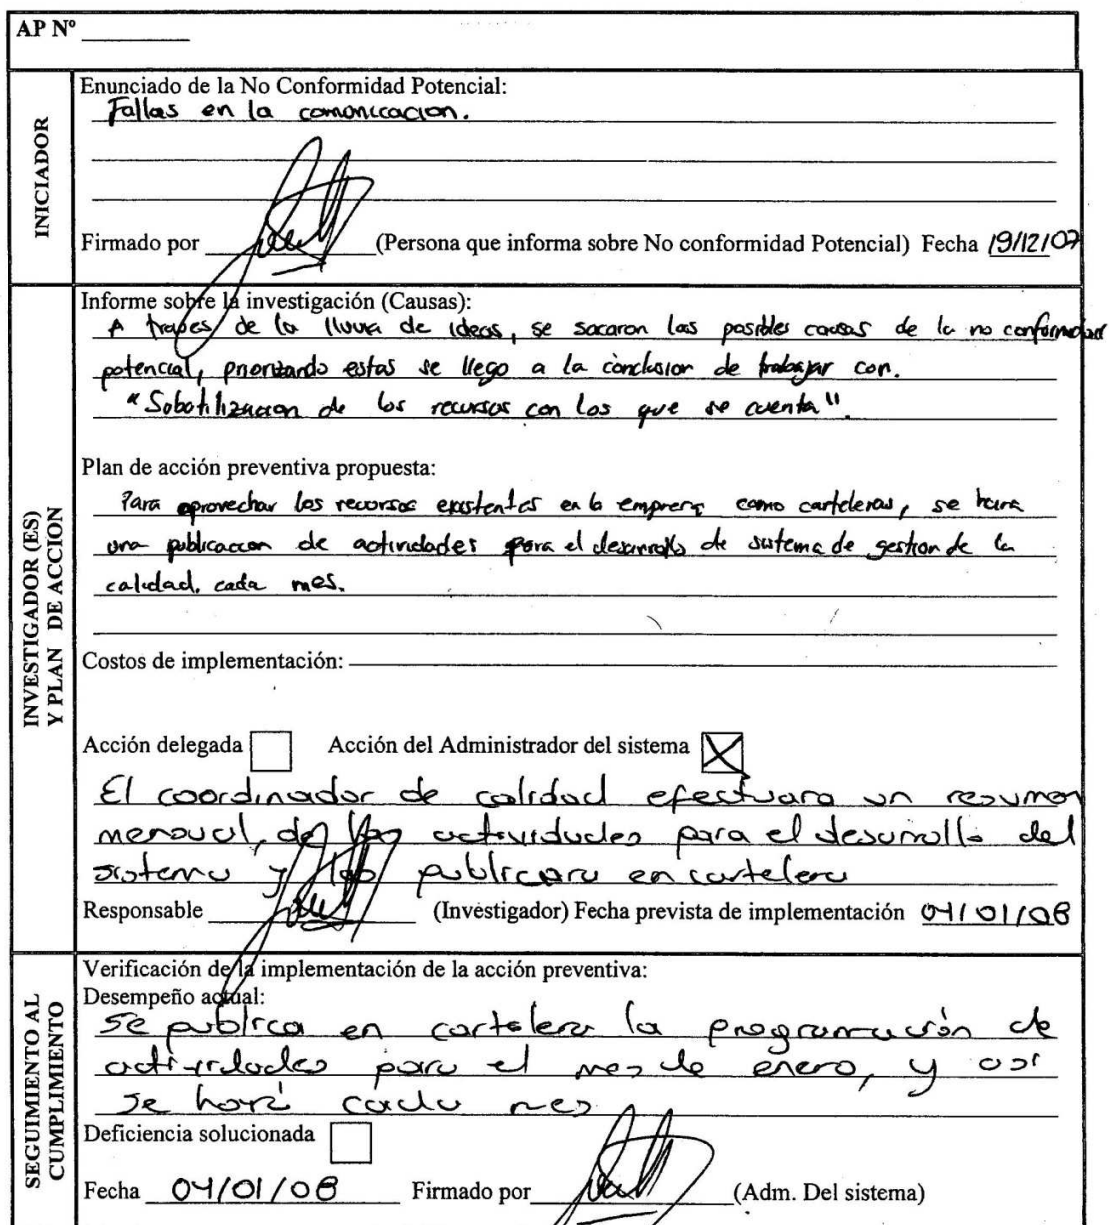 AP Nº
INICIADOR
Enunciado de la No Conformidad Potencial:
Fallas en la comonicacion.
Firmado por (Persona que informa sobre No conformidad Potencial) Fecha 19/12/07
INVESTIGADOR (ES)
Y PLAN DE ACCION
Informe sobre la investigación (Causas):
A traves de la lluvia de ideas, se sacaron las posibles causas de la no conformidad
potencial, priorizando estas se llego a la conclusion de trabajar con.
"Sobotilizacion de los recursos con los que se cuenta".
Plan de acción preventiva propuesta:
Para aprovechar los recursos existentes en la empresa como carteleras, se hara
una publicaccion de actividades para el desarrollo de sistema de gestion de la
calidad. cada mes.
Costos de implementación:
Acción delegada Acción del Administrador del sistema X
El coordinador de calidad efectuara un resumen
mensual, de las actividades para el desarrollo del
sistema y las publicara en cartelera
Responsable (Investigador) Fecha prevista de implementación 04/01/08
SEGUIMIENTO AL
CUMPLIMIENTO
Verificación de la implementación de la acción preventiva:
Desempeño actual:
Se publica en cartelera la programación de
actividades para el mes de enero, y asi
se hará cada mes
Deficiencia solucionada
Fecha 04/01/08 Firmado por (Adm. Del sistema)